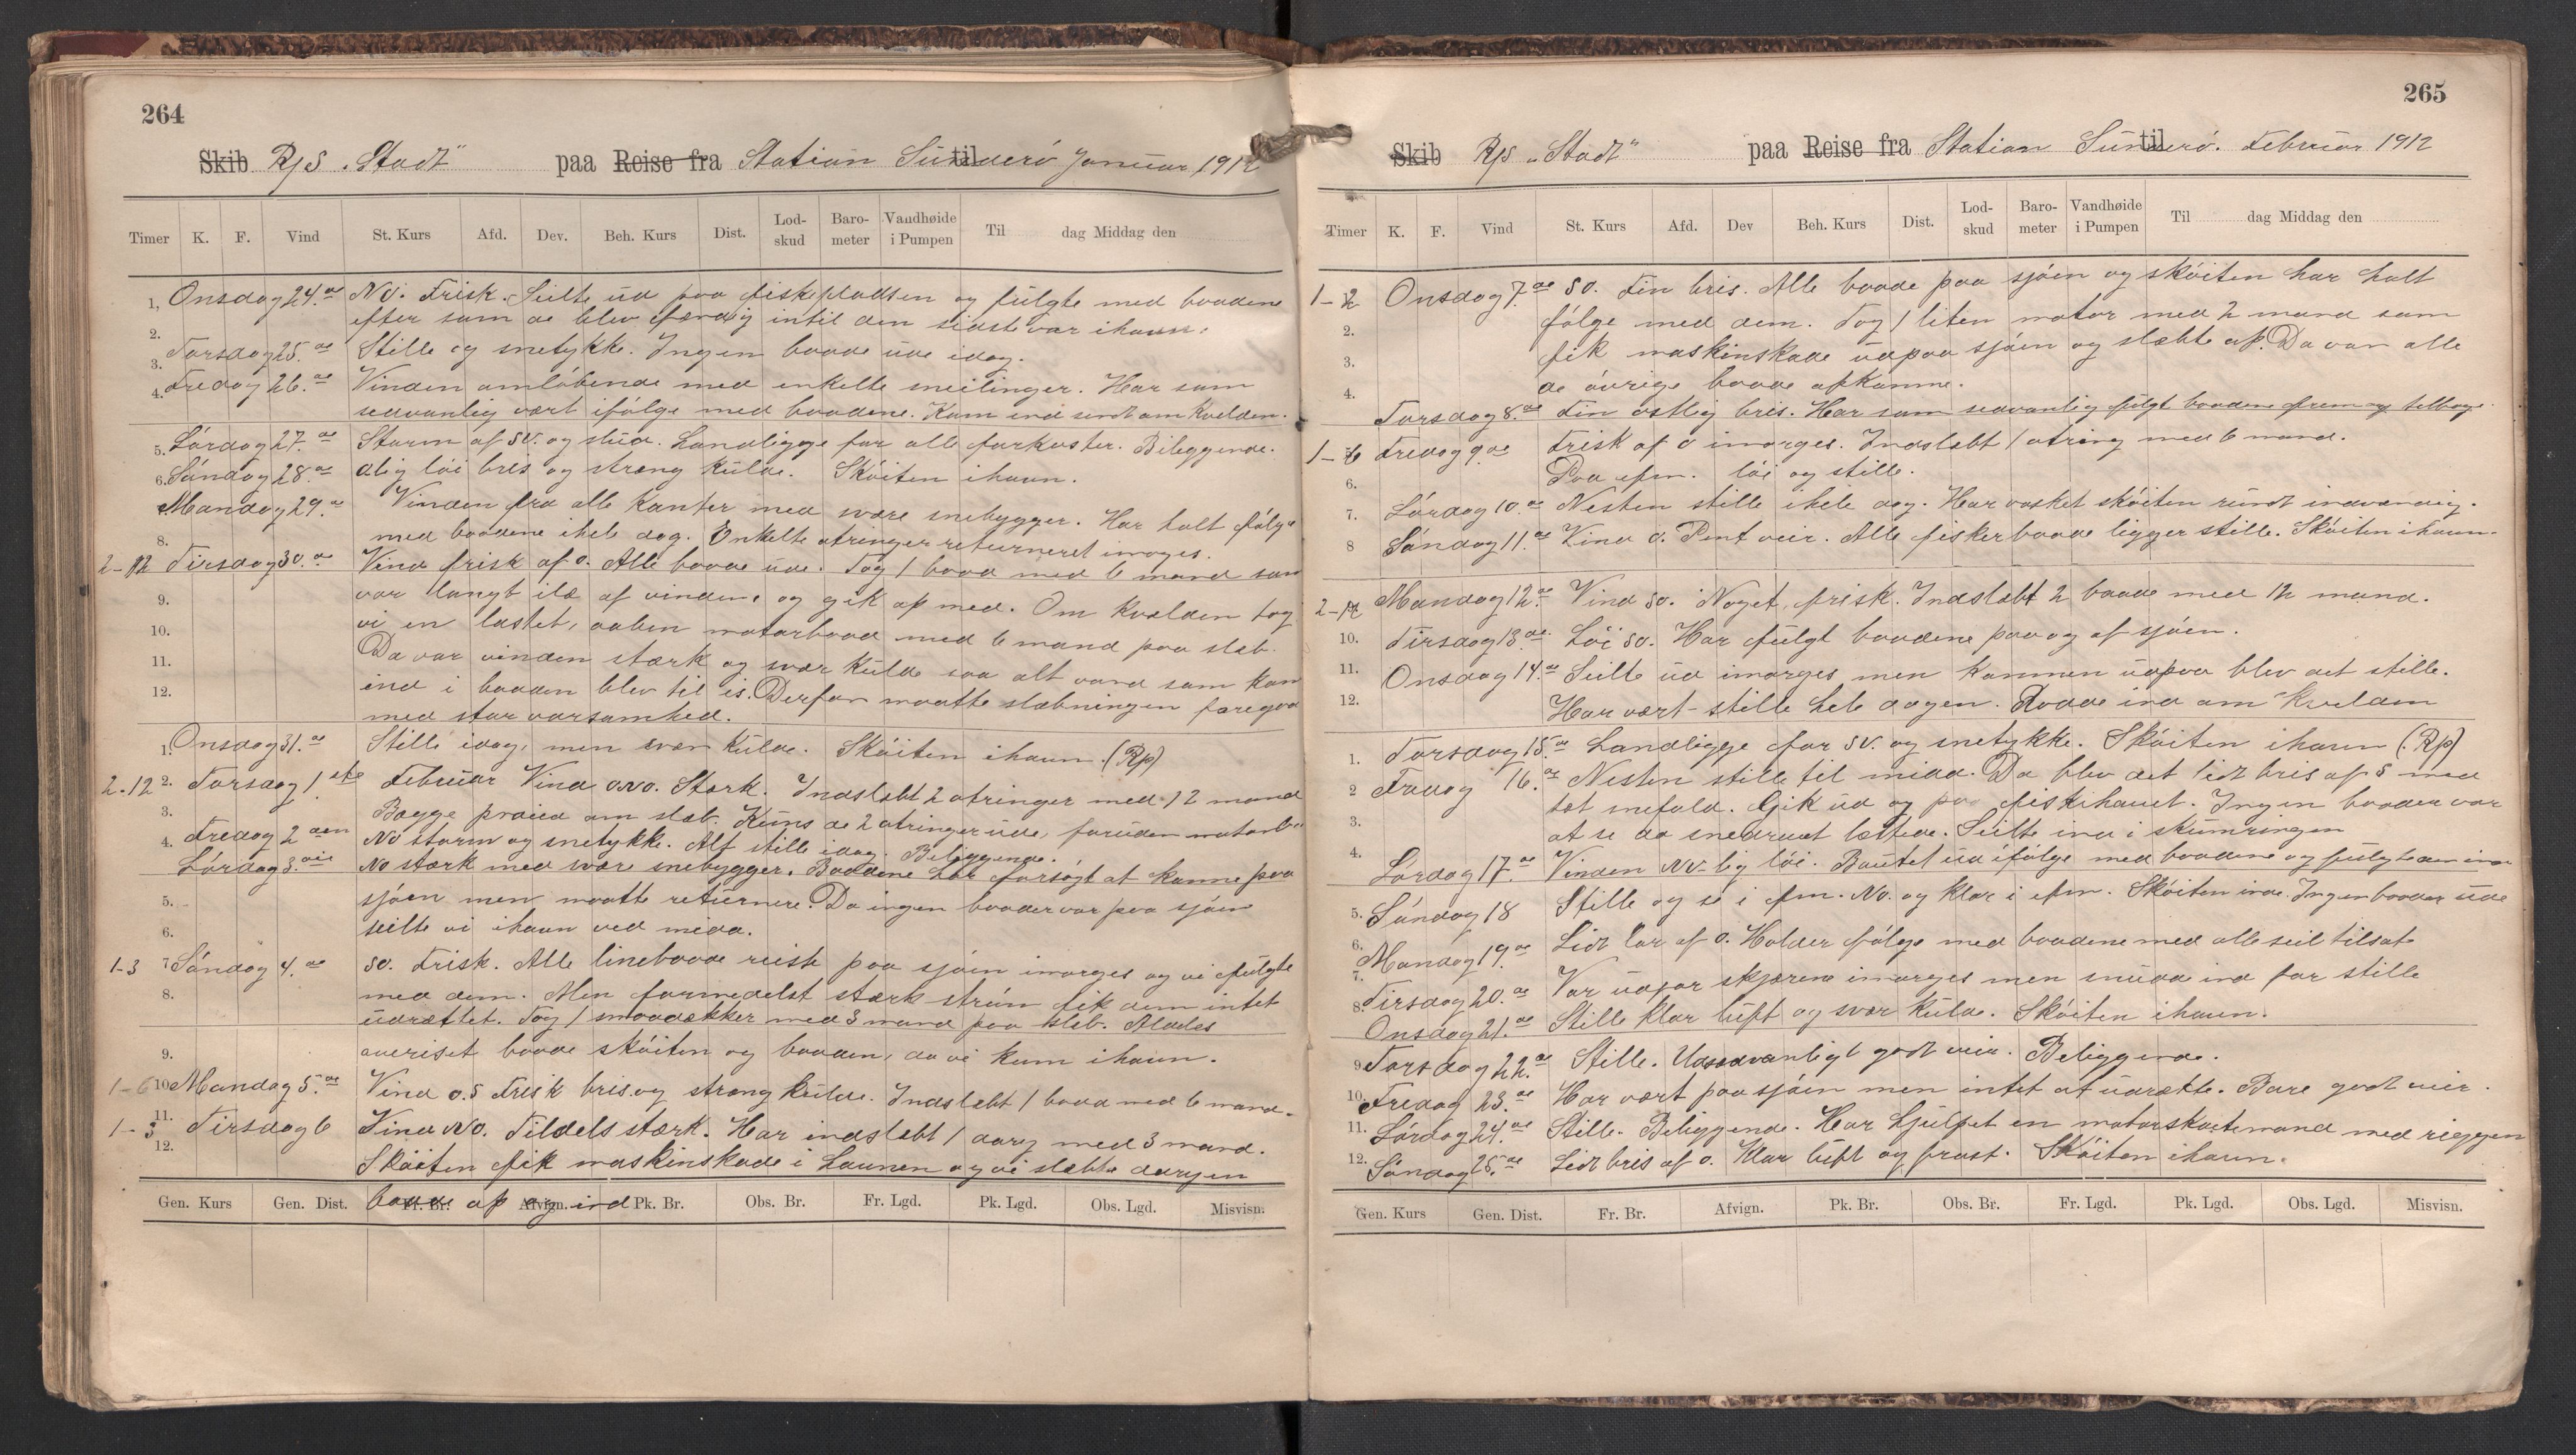 264
Skib R/S „Stadt" paa Reise fra Station Sünderö til Januar 1912
Timer K. F. Vind St. Kurs Afd. Dev. Beh. Kurs Dist. Lod-skud Baro-meter Vandhøide i Pumpen Til dag Middag den
1, Onsdag 24.de NO. Frisk. Seilte ud paa fiskepladsen og fulgte med baadene
efter som de blev færdig intil den sidste var ihavn.
2.
3. Torsdag 25.de Stille og snetykke. Ingen baade ude idag.
4. Fredag 26.de Vinden omløbende med enkelte sneilinger. Har som
sedvanlig vært ifølge med baadene. Kom ind sent om kvelden.
5. Lørdag 27.de Storm af SV. og slud. Landligge for alle farkoster. Bileggende.
6. Søndag 28.de Ølig löi bris og stræng kulde. Skøiten ihavn.
Mandag 29.de Vinden fra alle kanter med svære snebygger. Har holt følge
8. med baadene ihele dag. Enkelte otringer returneret imorges.
2-12 Tirsdag 30.de Vind frisk af O. Alle baade ude. Tog 1 baad med 6 mand som
9. var langt ilæ af vinden, og gik op med. Om kvælden tog
10. vi en lastet, aaben motorbaad med 6 mand paa slæb.
11. Da var vinden stærk og svær kulde saa alt vand som kom
12. ind i baaden blev til is. Derfor maatte slæbningen foregaa
med stor varsomhed.
1. Onsdag 31.de Stille idag, men svær kulde. Skøiten ihavn. (Rp)
2-12 2. Torsdag 1ste Februar Vind ONO. Stærk. Indslæbt 2 otringer med 12 mand
3. Begge praied om slæb. Kuns de 2 otringer ude, foruden motorb.
4. Fredag 2den NO storm og snetykke. Alt stille idag. Beliggende.
Lørdag 3.die NO stærk med svære snebygger. Baadene har forsøgt at komme paa
5. sjøen men maatte returnere. Da ingen baader var paa sjøen
6. seilte vi ihavn ved midd.
1-3 7 Søndag 4.de SO. Frisk. Alle linebaade reiste paa sjøen imorges og vi fulgte
8. med dem. Men formedelst stærk strøm fik dem intet
udrættet. Tog 1 smaadækker med 3 mand paa slæb. Alades
9. averiset baade skøiten og baaden, da vi kom ihavn.
1-6 10. Mandag 5.de Vind O.S Frisk bris og stræng kulde. Indslæbt 1 baad med 6 mand.
11. 1-3 Tirsdag 6 Vind NO. Tildels stærk. Har indslæbt 1 dorry med 3 mand.
12. Skøiten fik maskinskade i Launen og vi slæbte dorryen
Gen. Kurs Gen. Dist. Fr. Br. Afvign. Pk. Br. Obs. Br. Fr. Lgd. Pk. Lgd. Obs. Lgd. Misvisn.
baade op og ind
265
Skib R/S „Stadt" paa Reise fra Station Sünderö. til Februar 1912
Timer K. F. Vind St. Kurs Afd. Dev Beh. Kurs Dist. Lod-skud Baro-meter Vandhøide i Pumpen Til dag Middag den
1-2 Onsdag 7.de SO. Fin bris. Alle baade paa sjøen og skøiten har holt
2. følge med dem. Tog 1 liten motor med 2 mand som
3. fik maskinskade udpaa sjøen og slæbte op. Da var alle
4. de øvrige baade opkomne.
Torsdag 8.de Fin østlig bris. Har som sedvanlig fulgt baadene frem og tilbage.
1-6 Fredag 9.de Frisk af O imorges. Indslæbt 1 otring med 6 mand.
6. Paa efm. löi og stille.
7. Lørdag 10.de Nesten stille ihele dag. Har vasket skøiten rundt indvændig.
8 Søndag 11.de Vind O. Pent veir. Alle fiskerbaade ligger stille. Skøiten ihavn.
2-12 Mandag 12.de Vind SO. Noget frisk. Indslæbt 2 baade med 12 mand.
10. Tirsdag 13.de Löi SO. Har fulgt baadene paa og af sjøen.
11. Onsdag 14.de Seilte ud imorges men kommen udpaa blev det stille.
12. Har vært stille hele dagen. Rodde ind om kvelden
1. Torsdag 15.de Landligge for SV. og snetykke. Skøiten ihavn (Rp)
2 Fredag 16.de Nesten stille til midd. Da blev det lidt bris af S med
3. tæt snefald. Gik ud og paa fiskihavet. Ingen baader var
4. at se da snedrevet lettede. Seilte ind i skumringen
Lørdag 17.de Vinden NV-lig löi. Bautet ud ifølge med baadene og fulgte dem ind
5. Søndag 18 Stille og se i fm. NO. og klar i efm. Skøiten inde. Ingen baader ude
6. Mandag 19.de Lidt lar af O. Holder følge med baadene med alle seil tilsat
7.
8. Tirsdag 20.de Var udfor skjærene imorges men snudd ind for stille
Onsdag 21.de Stille klar luft og svær kulde. Skøiten ihavn.
9 Torsdag 22.de Stille. Udsædvanligt godt veir. Beliggende.
10. Fredag 23.de Har vært paa sjøen men intet at udrætte. Bare godt veir.
11. Lørdag 24.de Stille. Beliggende. Har hjulpet en motorskøitemand med riggen
12. Søndag 25.de Lidt bris af O. Klar luft og frost. Skøiten ihavn.
Gen. Kurs Gen. Dist. Fr. Br. Afvign. Pk. Br. Obs. Br. Fr. Lgd. Pk. Lgd. Obs. Lgd. Misvisn.